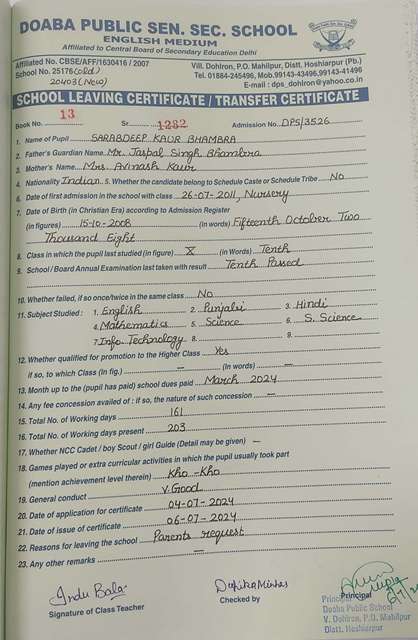 DOABA PUBLIC SEN. SEC. SCHOOL
ENGLISH MEDIUM
Affiliated to Central Board of Secondary Education Delhi
Affiliated No. CBSE/AFF/1630416 / 2007
School No. 25176 (old)
20403 (New)
Vill. Dohlron, P.O. Mahilpur, Distt. Hoshiarpur (Pb.)
Tel. 01884-245496, Mob.99143-43496,99143-41496
E-mail : dps_dohlron@yahoo.co.in
SCHOOL LEAVING CERTIFICATE / TRANSFER CERTIFICATE
Book No. 13 Sr. 1232 Admission No. DPS/3526
1. Name of Pupil SARABDEEP KAUR BHAMBRA
2. Father's Guardian Name Mr. Jaspal Singh Bhambra
3. Mother's Name Mrs. Avinash Kaur
4. Nationality Indian 5. Whether the candidate belong to Schedule Caste or Schedule Tribe No
6. Date of first admission in the school with class 26-07-2011, Nursery
7. Date of Birth (in Christian Era) according to Admission Register
(in figures) 15-10-2008 (In words) Fifteenth October Two
Thousand Eight
8. Class in which the pupil last studied (in figure) X (in Words) Tenth
9. School / Board Annual Examination last taken with result Tenth Passed
10. Whether failed, if so once/twice in the same class No
11. Subject Studied : 1. English 2. Punjabi 3. Hindi
4. Mathematics 5. Science 6. S. Science
7. Info. Technology 8. 9.
12. Whether qualified for promotion to the Higher Class Yes
if so, to which Class (in fig.) — (In words) —
13. Month up to the (pupil has paid) school dues paid March 2024
14. Any fee concession availed of : if so, the nature of such concession —
15. Total No. of Working days 161
16. Total No. of Working days present 203
17. Whether NCC Cadet / boy Scout / girl Guide (Detail may be given) —
18. Games played or extra curricular activities in which the pupil usually took part
(mention achievement level therein) Kho-Kho
19. General conduct V.Good
20. Date of application for certificate 04-07-2024
21. Date of issue of certificate 06-07-2024
22. Reasons for leaving the school Parents request
23. Any other remarks —
Indu Bala
Signature of Class Teacher
Checked by
Principal
Principal
Doaba Public School
V. Dohlron, P.O. Mahilpur
Distt. Hoshiarpur